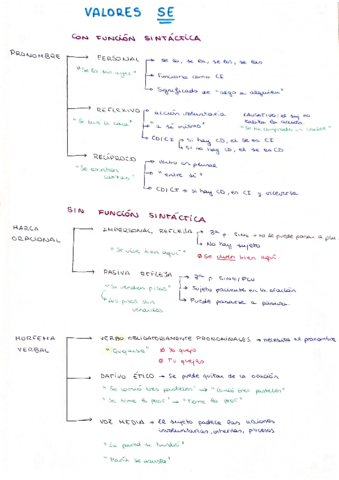 VALORES SE
CON FUNCIÓN SINTÁCTICA
PRONOMBRE → PERSONAL → se lo, se la, se los, se las
"Se lo dio ayer" → Funciona como CI
→ Significado de "algo a alguien"
→ REFLEXIVO → acción voluntaria
"Se lava la cara" → "a sí mismo"
→ CD/CI → si hay CD, el se en CI
→ si no hay CD, el se en CD
CAUSATIVO: el suj no
realiza la acción.
"Se ha comprado un chalet"
→ RECÍPROCO → verbo en plural
"Se escriben cartas" → "entre sí"
→ CD/CI → si hay CD, en CI y viceversa
SIN FUNCIÓN SINTÁCTICA
MARCA ORACIONAL → IMPERSONAL REFLEJA → 3ª p. SING → no se puede pasar a plu.
→ No hay sujeto
"Se vive bien aquí" Ø Se viven bien aquí
→ PASIVA REFLEJA → 3ª p SING/PLU
"Se venden pisos" → Sujeto paciente en la oración
→ Los pisos son vendidos → Puede pasarse a pasiva.
MORFEMA VERBAL → VERBO OBLIGATORIAMENTE PRONOMINALES → Necesita el pronombre
"Quejarse" Ø Yo quejo
Ø Tu quejas
→ DATIVO ÉTICO → Se puede quitar de la oración
"Se comió tres pasteles" → "Comió tres pasteles"
"Se teme lo peor" → "Teme lo peor"
→ VOZ MEDIA → El sujeto padece las acciones
involuntarias, internas, procesos
"La pared se hundió"
"María se marea"